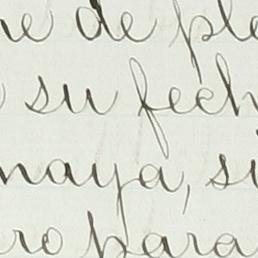 e de ple
su fech
naya, si
re para